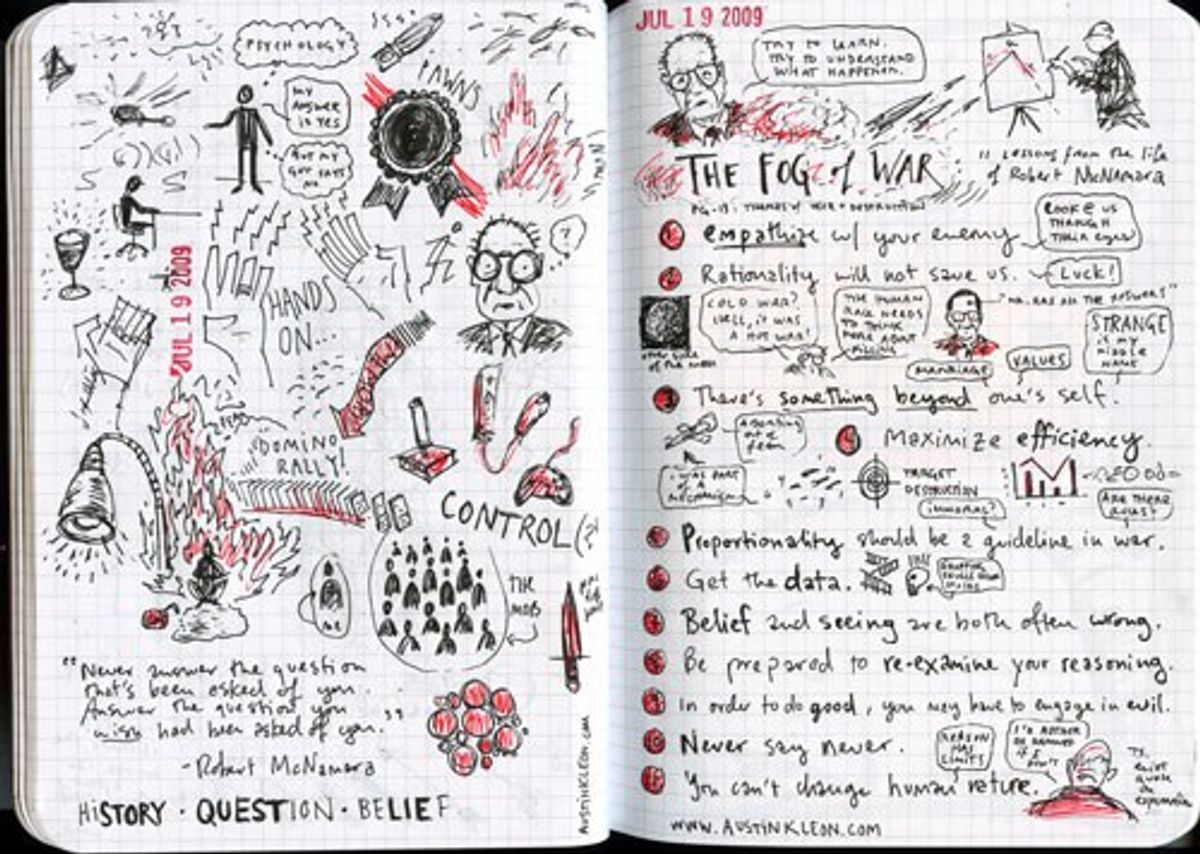 PSYCHOLOGY
MY
ANSWER
IS YES
BUT MY
GUT SAYS
NO
PAWNS
JUL 19 2009
HANDS
ON...
DOMINO
RALLY!
CONTROL
ME
THE
MOB
"Never answer the question
that's been asked of you.
Answer the question you
wish had been asked of you."
-Robert McNamara
HiSTORY · QUESTION · BELIEF
AUSTINKLEON.COM
JUL 19 2009
TRY TO LEARN.
TRY TO UNDERSTAND
WHAT HAPPENED.
THE FOG of WAR
11 LESSONS from the life
of Robert McNAMARA
PG-13: THEMES of WAR + DESTRUCTION
1 empathize w/ your enemy
LOOK @ US
THROUGH
THEIR EYES
2 Rationality will not save us.
LUCK!
COLD WAR?
HELL, it was
A HOT WAR!
THE HUMAN
RACE NEEDS
TO THINK
MORE ABOUT
KILLING
"MR. HAS ALL THE ANSWERS"
STRANGE
is my
middle
NAME
other side
of the moon
MARRIAGE
VALUES
3 There's something beyond one's self.
4 Maximize efficiency.
I WAS PART
OF A
MECHANISM
TARGET
DESTRUCTION
IMMORAL?
ARE THERE
RULES?
5 Proportionality should be a guideline in war.
6 Get the data.
7 Belief and seeing are both often wrong.
8 Be prepared to re-examine your reasoning.
9 In order to do good, you may have to engage in evil.
10 Never say never.
REASON
HAS
LIMITS
I'D RATHER
BE DAMNED
IF I
DON'T
11 You can't change human nature.
T.S.
Eliot
quote
on
exploration
WWW.AUSTINKLEON.COM